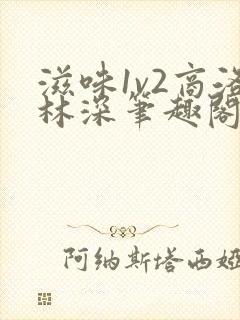 滋味1v2高洛
林深笔趣阁
阿纳斯塔西娅